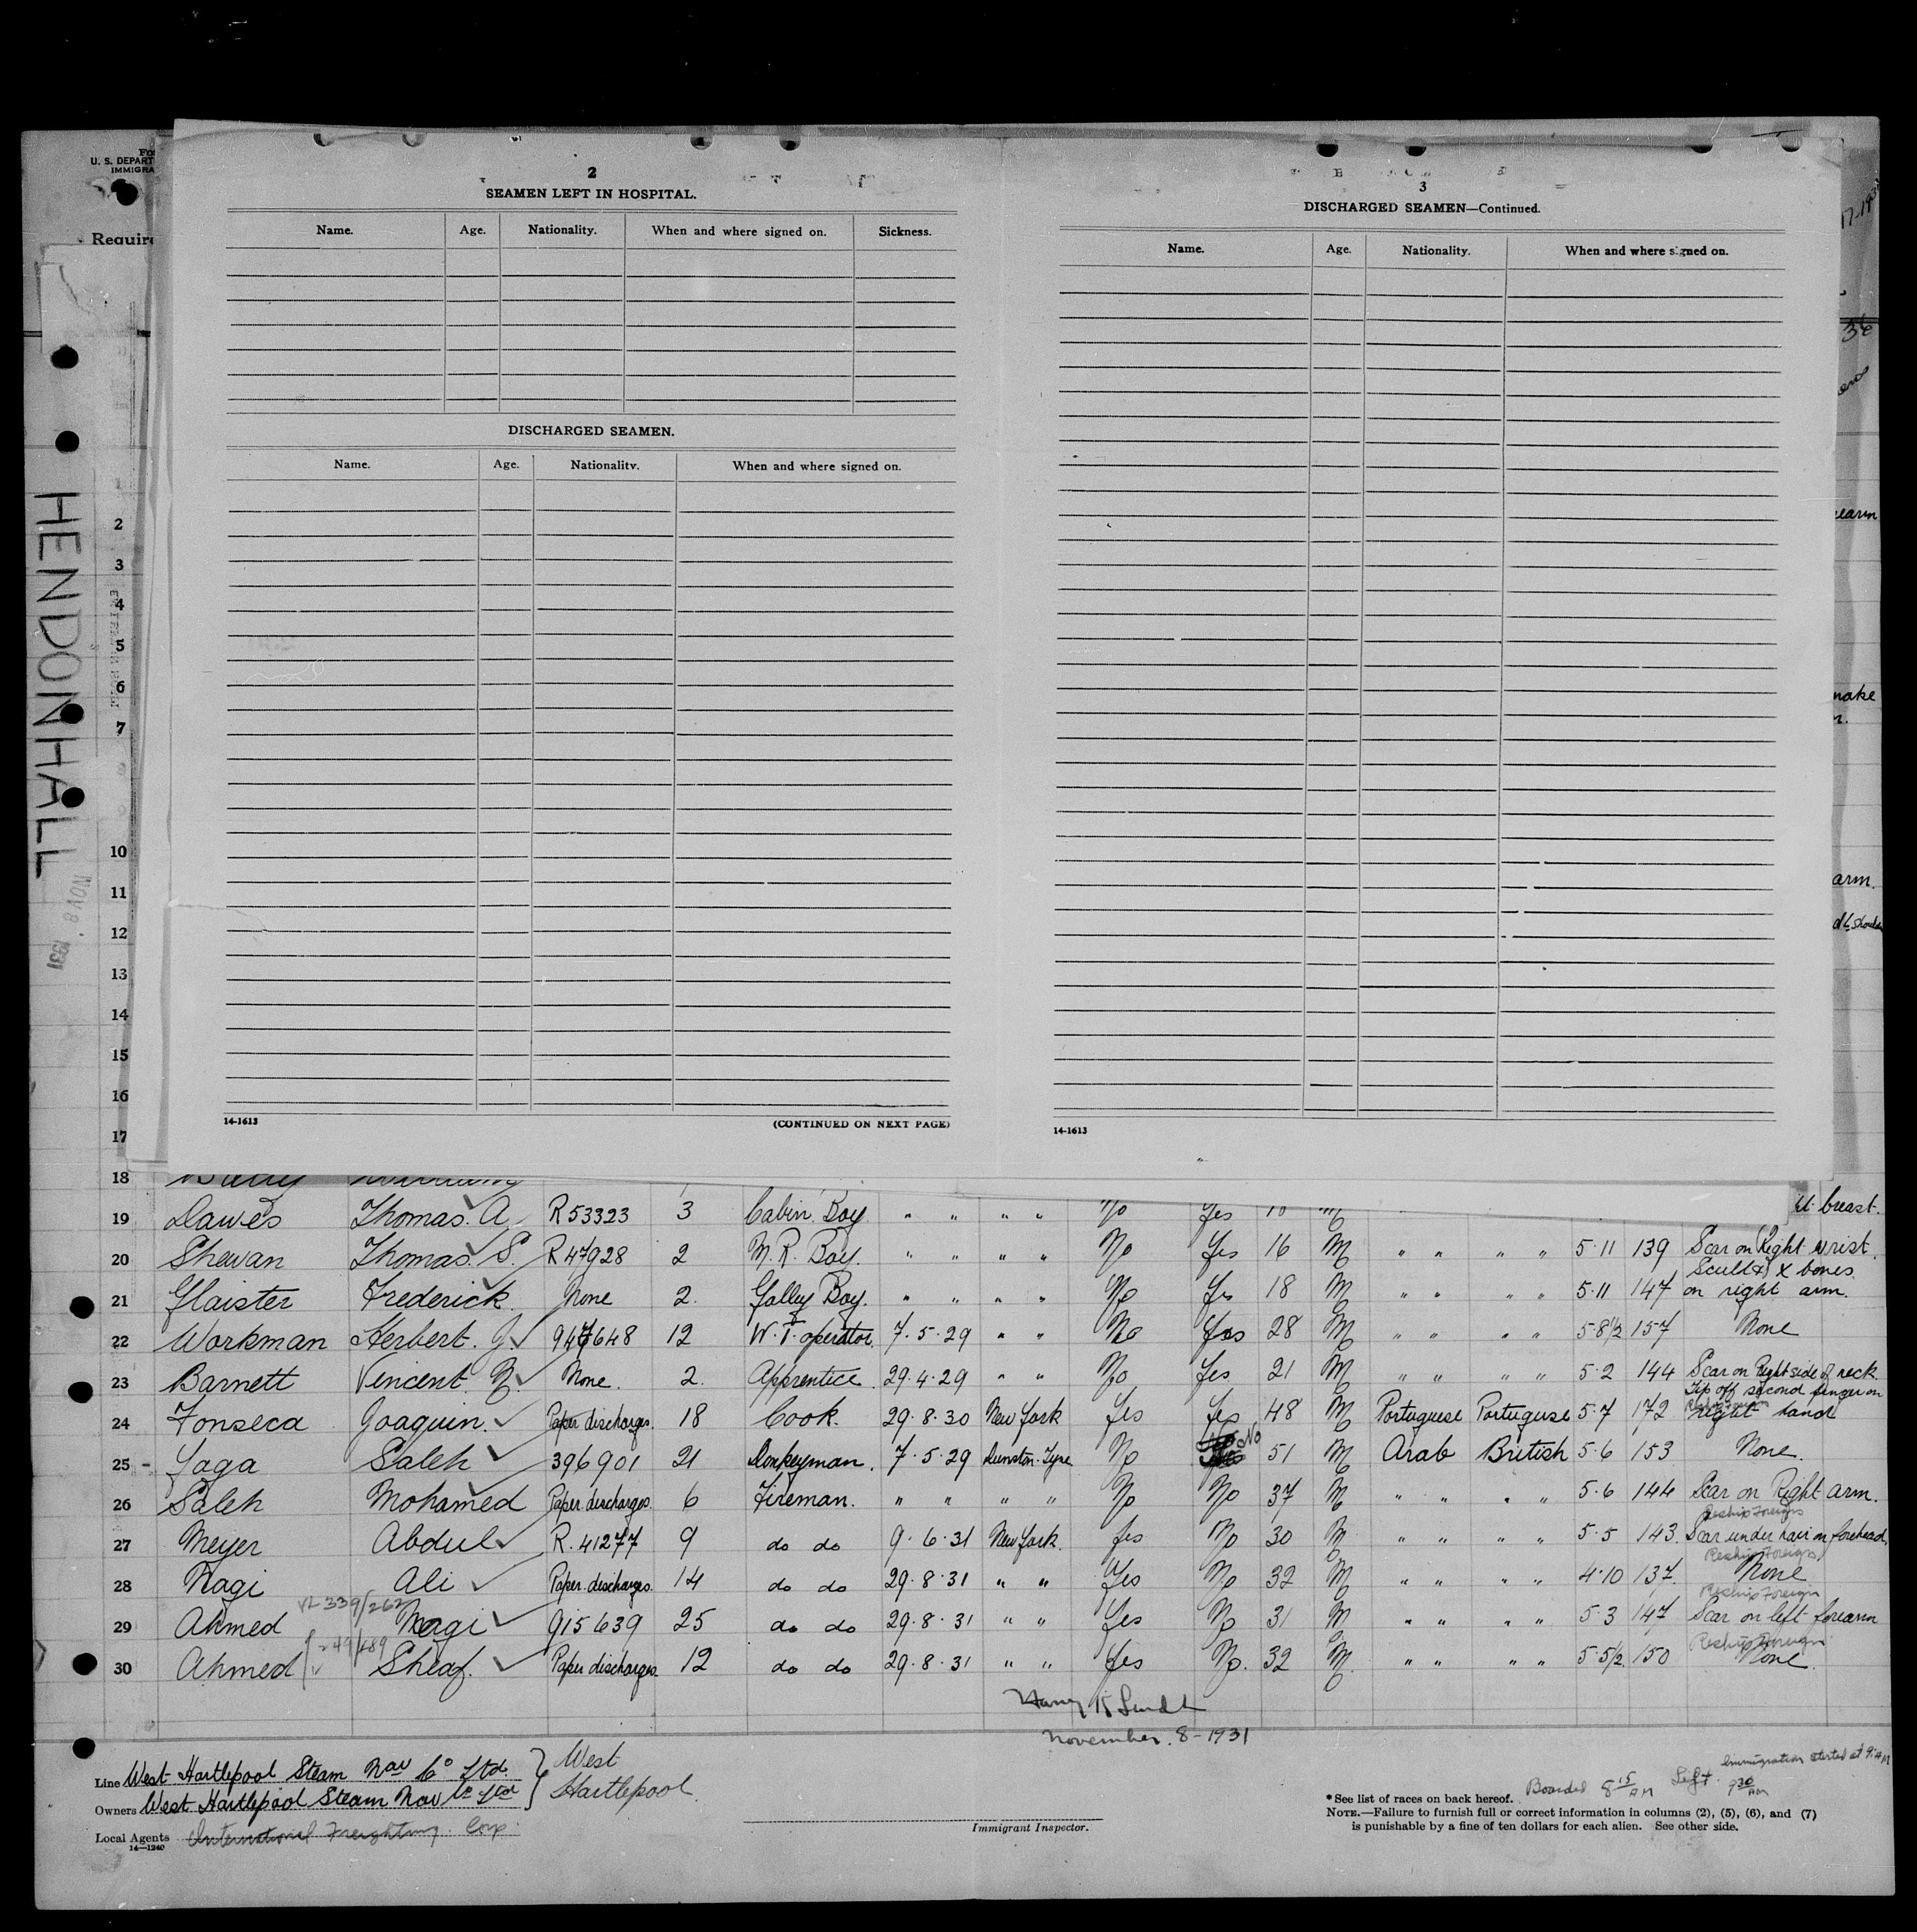 U. S. DEPART
IMMIGRA
Require
HENDONHALL
NOV 8 1931
2
SEAMEN LEFT IN HOSPITAL.
Name. Age. Nationality. When and where signed on. Sickness.
DISCHARGED SEAMEN.
Name. Age. Nationality. When and where signed on.
14-1613 (CONTINUED ON NEXT PAGE)
3
DISCHARGED SEAMEN—Continued.
Name. Age. Nationality. When and where signed on.
14-1613
2
3
4
5
6
7
10
11
12
13
14
15
16
17
18
earm
make
arm.
19 Dawes Thomas. A. R 53323 3 Cabin Boy " " " " No Yes breast.
20 Shewan Thomas. S. R 47928 2 M. R. Boy. " " " " No Yes 16 M " " " " 5·11 139 Scar on Right wrist.
Scull & X bones
21 Glaister Frederick. None 2. Galley Boy. " " " " No Yes 18 M " " " " 5·11 147 on right arm.
22 Workman Herbert. J. 947648 12 W. T. operator. 7·5·29 " " No Yes 28 M " " " " 5·8½ 157 None
23 Barnett Vincent. N. None. 2. Apprentice. 29·4·29 " " No Yes 21 M " " " " 5·2 144 Scar on Right side of neck.
Tip off second finger on
24 Fonseca Joaquin. Paper discharges. 18 Cook. 29·8·30 New York Yes Yes 48 M Portuguese Portuguese 5·7 172 right hand
25 - Jaga Saleh 396901 21 Donkeyman. 7·5·29 Dunston-Tyne No No 51 M Arab British 5·6 153 None.
26 Saleh Mohamed Paper discharges. 6 Fireman. " " " " No No 37 M " " " " 5·6 144 Scar on Right arm.
Reship Foreign
27 Meyer Abdul R. 41277 9 do do 9·6·31 New York. Yes No 30 M " " " " 5·5 143. Scar under hair on forehead.
Reship Foreign
28 Nagi Ali Paper discharges. 14 do do 29·8·31 " " Yes No 32 M " " " " 4·10 137. None
VL 339/262 Reship Foreign
29 Ahmed Nagi 915639 25 do do 29·8·31 " " Yes No 31 M " " " " 5·3 147 Scar on left forearm
249/489 Reship Foreign
30 Ahmed Sheaf. Paper discharges. 12 do do 29·8·31 " " Yes No. 32 M. " " " " 5·5½. 150 None.
November. 8-1931
Line West Hartlepool Steam Nav Co Ltd. } West
Owners West Hartlepool Steam Nav Co Ltd Hartlepool.
Local Agents International Freighting Corp.
14—1240
Immigrant Inspector.
Immigration started at 9 AM
Boarded 8 15 AM Left 9 30 AM
* See list of races on back hereof.
NOTE.—Failure to furnish full or correct information in columns (2), (5), (6), and (7)
is punishable by a fine of ten dollars for each alien. See other side.